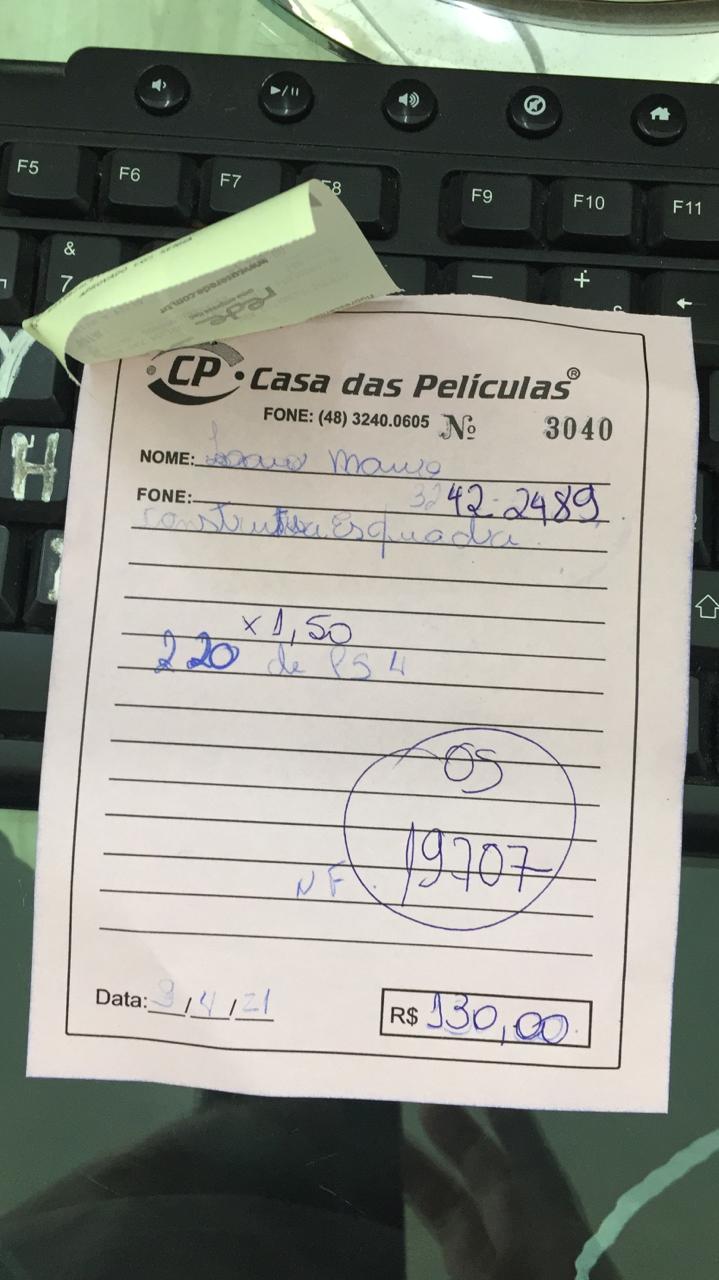 F5 F6 F7 F8 F9 F10 F11
& — +
7
H
www.userede.com.br
rede
CP • Casa das Películas®
FONE: (48) 3240.0605 Nº 3040
NOME:
FONE: 3242-2489
Esquadra
x 1,50
220 de PS4
OS
19707
NF.
Data: 9/4/21 R$ 130,00